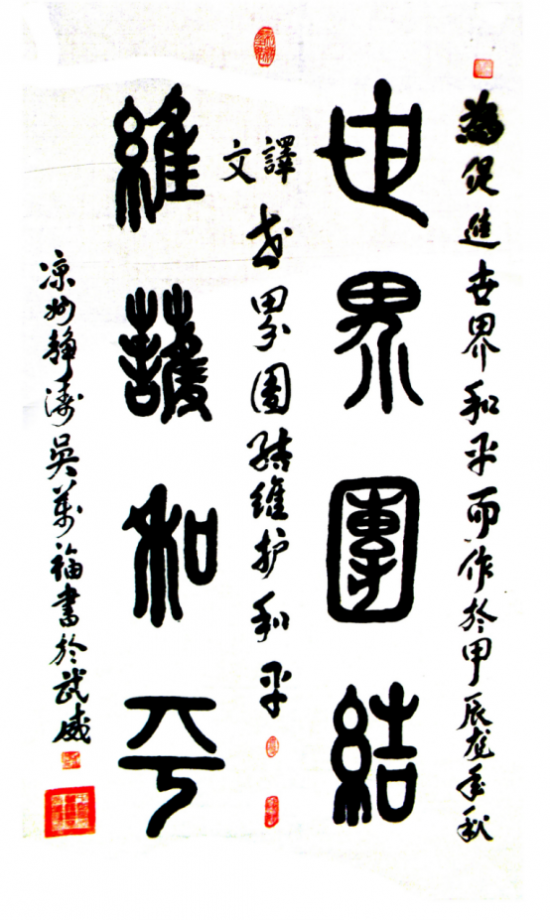 為促進世界和平而作於甲辰龙年秋
世界團結
譯文
世界団结維护和平
維護和平
凉州静涛吴萬福書於武威